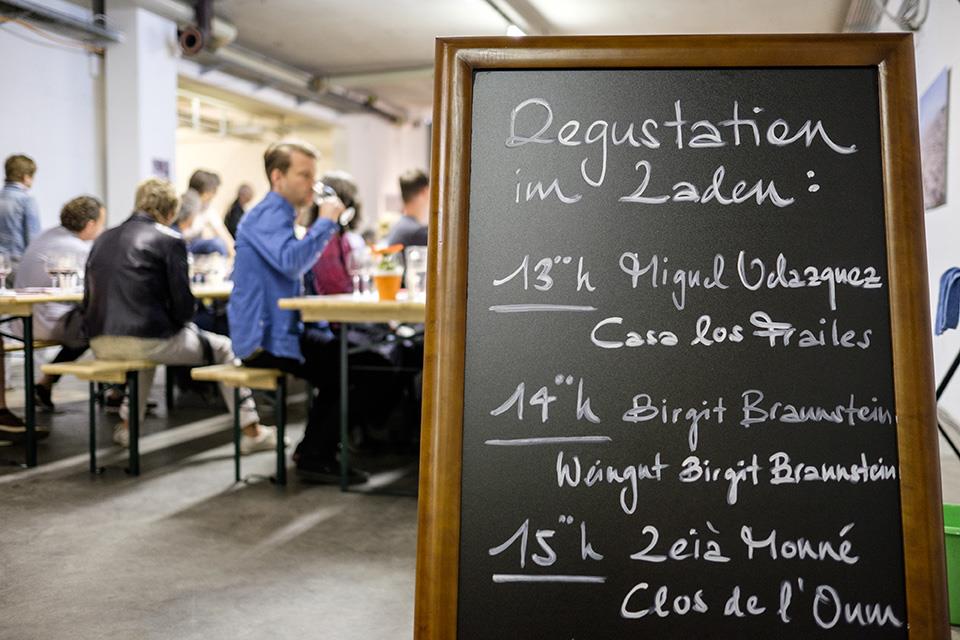 Degustation
im Laden:
13°°h Miguel Velazquez
Casa los Frailes
14°°h Birgit Braunstein
Weingut Birgit Braunstein
15°°h Zeià Monné
Clos de l'Oum